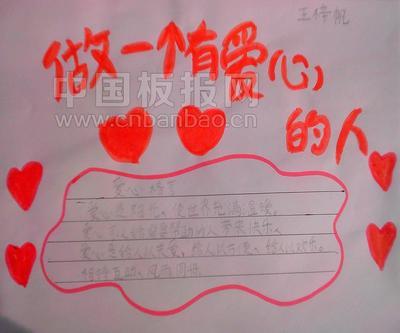 做一个有爱心
的人
中国板报网
www.cnbanbao.cn
爱心
爱心是阳光,使世界充满温暖。
爱心可以给需要帮助的人带来快乐。
爱心是给人以关爱,给人以方便、给人以欢乐。
相持互助、风雨同舟